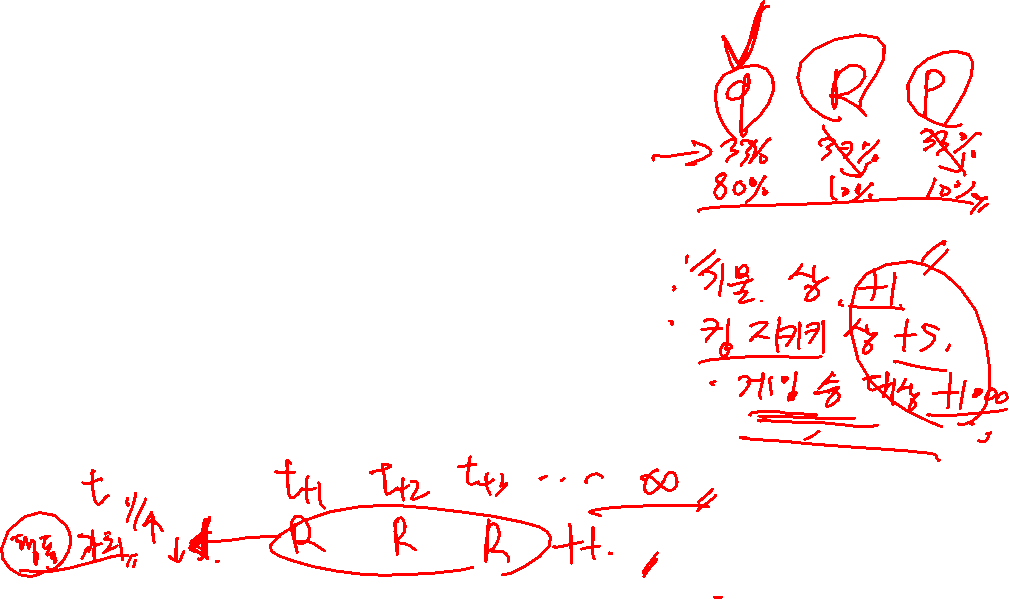 q R P
33% 33% 33%
80% 10% 10%
· 상 +1
· 킹 지키기 상 +5.
· 게임 승 대상 +1000
t t+1 t+2 t+3 ... ∞
행동 강화 R R R ++.